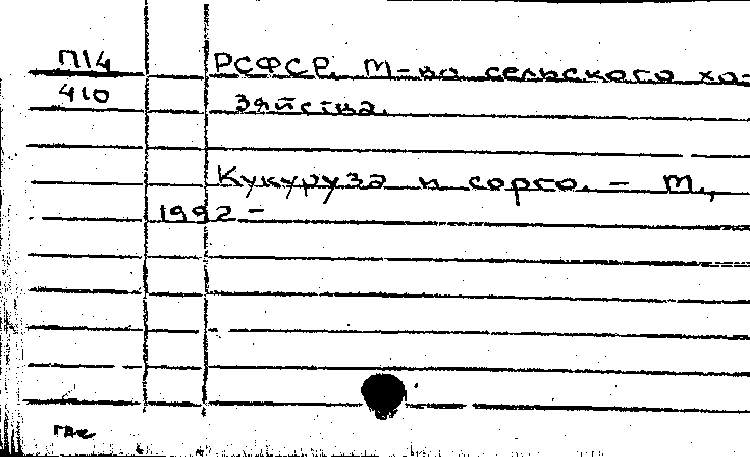 П14 РСФСР. М-во сельского хо-
410 зяйства.
Кукуруза и сорго. – М.,
1992 –